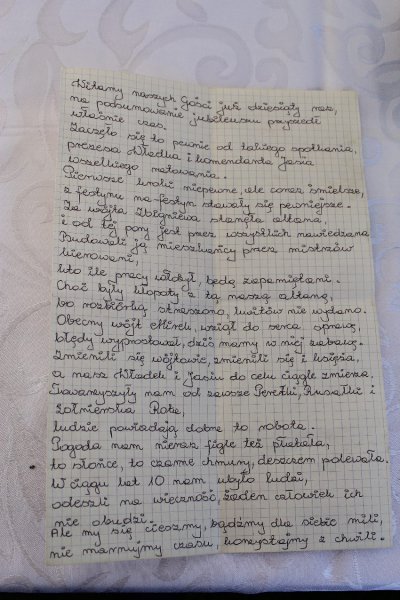 Witamy naszych Gości już dziesiąty raz,
na podsumowanie jubileuszu przyszedł
właśnie czas.
Zaczęło się to pewnie od takiego spotkania,
prezesa Władka i komendanta Jasia
wszelkiego ratowania.
Pierwsze kroki niepewne, ale coraz śmielsze,
z festynu na festyn stawały się pewniejsze.
Za wójta Zbigniewa stanęła altana,
i od tej pory jest przez wszystkich nawiedzana
Budowali ją mieszkańcy przez mistrzów
kierowani,
kto ile pracy włożył, będą zapamiętani.
Choć były kłopoty z tą naszą altaną,
bo rozbiórką straszono, kwitów nie wydano.
Obecny wójt Mirek, wziął do serca sprawę,
błędy wyprostował, dziś mamy w niej zabawę.
Zmienili się wójtowie, zmienili się i księża,
a nasz Władek i Jasiu do celu ciągle zmierza.
Towarzyszyły nam od zawsze Perełki, Rusałki i
Żołnierska Rota,
ludzie powiadają dobra to robota.
Pogoda nam nieraz figle też płatała,
to słońce, to czarne chmury, deszczem polewała.
W ciągu lat 10 nam ubyło ludzi,
odeszli na wieczność, żaden człowiek ich
nie obudzi.
Ale my się cieszmy, bądźmy dla siebie mili,
nie marnujmy czasu, korzystajmy z chwili.